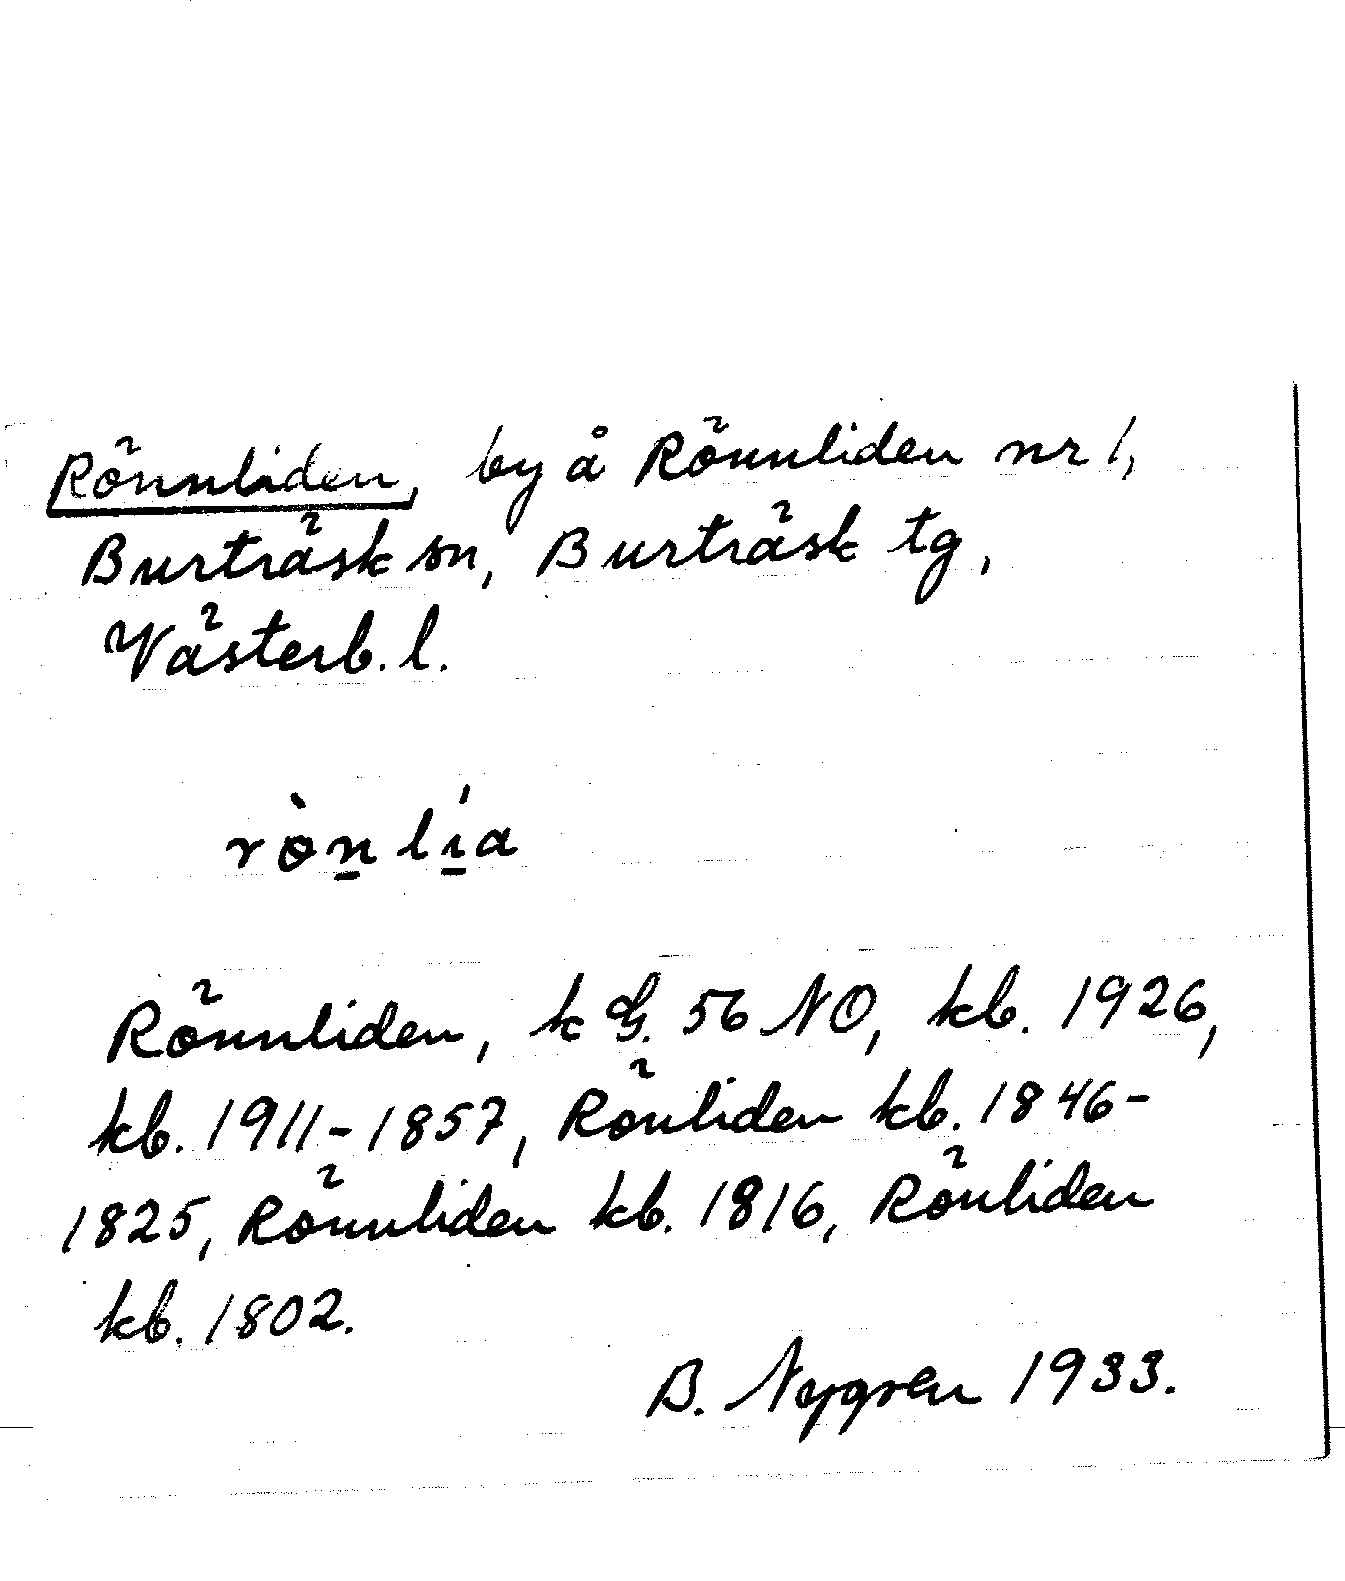 Rönnliden, by å Rönnliden nr 1,
Burträsk sn, Burträsk tg,
Västerb. l.
ròn̲ lí̲a
Rönnliden, k G. 56 NO, kb. 1926,
kb. 1911-1857, Rönliden kb. 1846-
1825, Rönnliden kb. 1816, Rönliden
kb. 1802.
B. Nygren 1933.